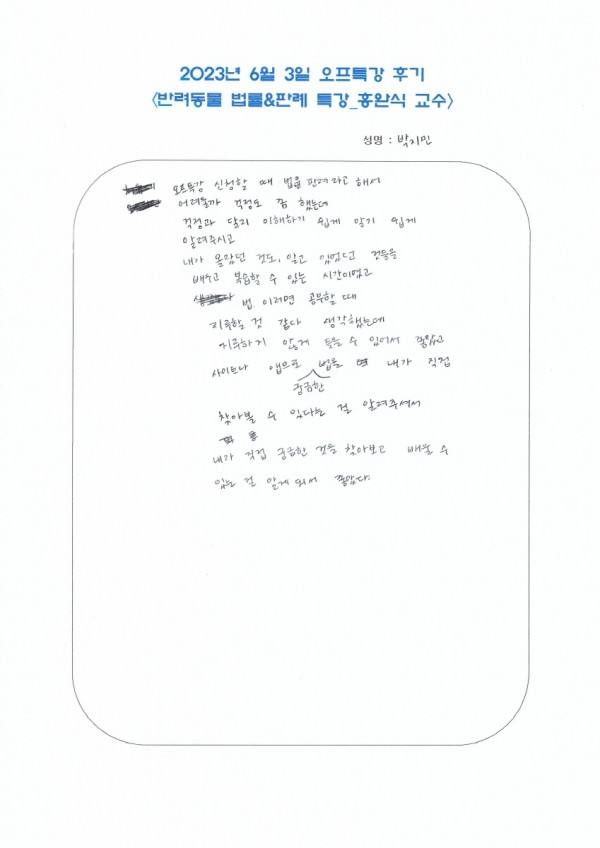 2023년 6월 3일 오프특강 후기
<반려동물 법률&판례 특강_홍완식 교수>
성명 : 박지민
오프특강 신청할 때 법률 판례라고 해서
어려울까 걱정도 좀 했는데
걱정과 달리 이해하기 쉽게 알기 쉽게
알려주시고
내가 몰랐던 것도, 알고 있었던 것들을
배우고 복습할 수 있는 시간이었고
법 이러면 공부할 때
지루할 것 같다 생각했는데
지루하지 않게 들을 수 있어서 좋았고
사이트나 앱으로 법률 내가 직접
궁금한
찾아볼 수 있다는 걸 알려주셔서
내가 직접 궁금한 것을 찾아보고 배울 수
있는 걸 알게 되서 좋았다.